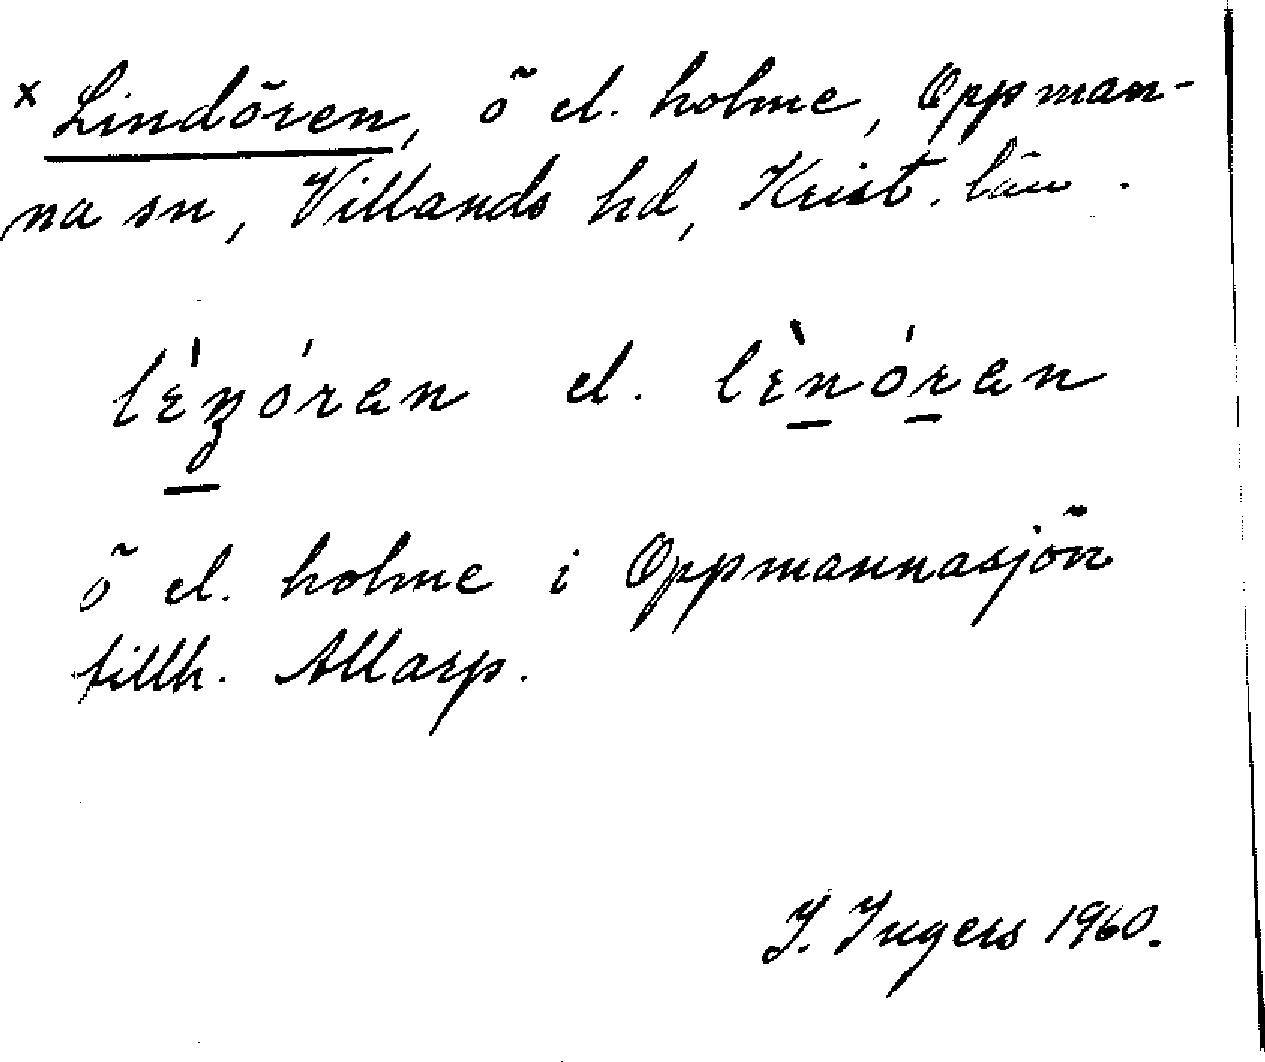 x Lindören, ö el. holme, Oppman-
na sn, Villands hd, Krist. län.
el.
ö el. holme i Oppmannasjön
tillh. Allarp.
I. Ingers 1960.